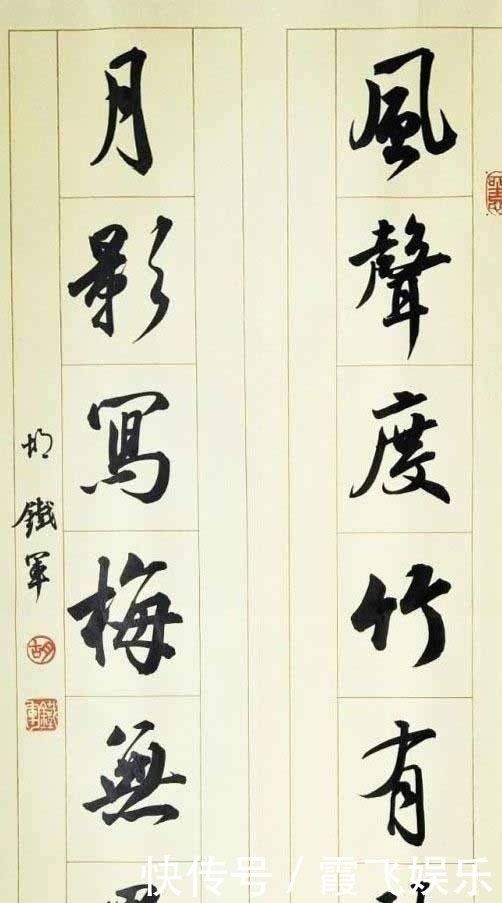 風聲度竹有
月影寫梅無
胡鐵軍
胡
鐵軍
快传号/霞飞娱乐